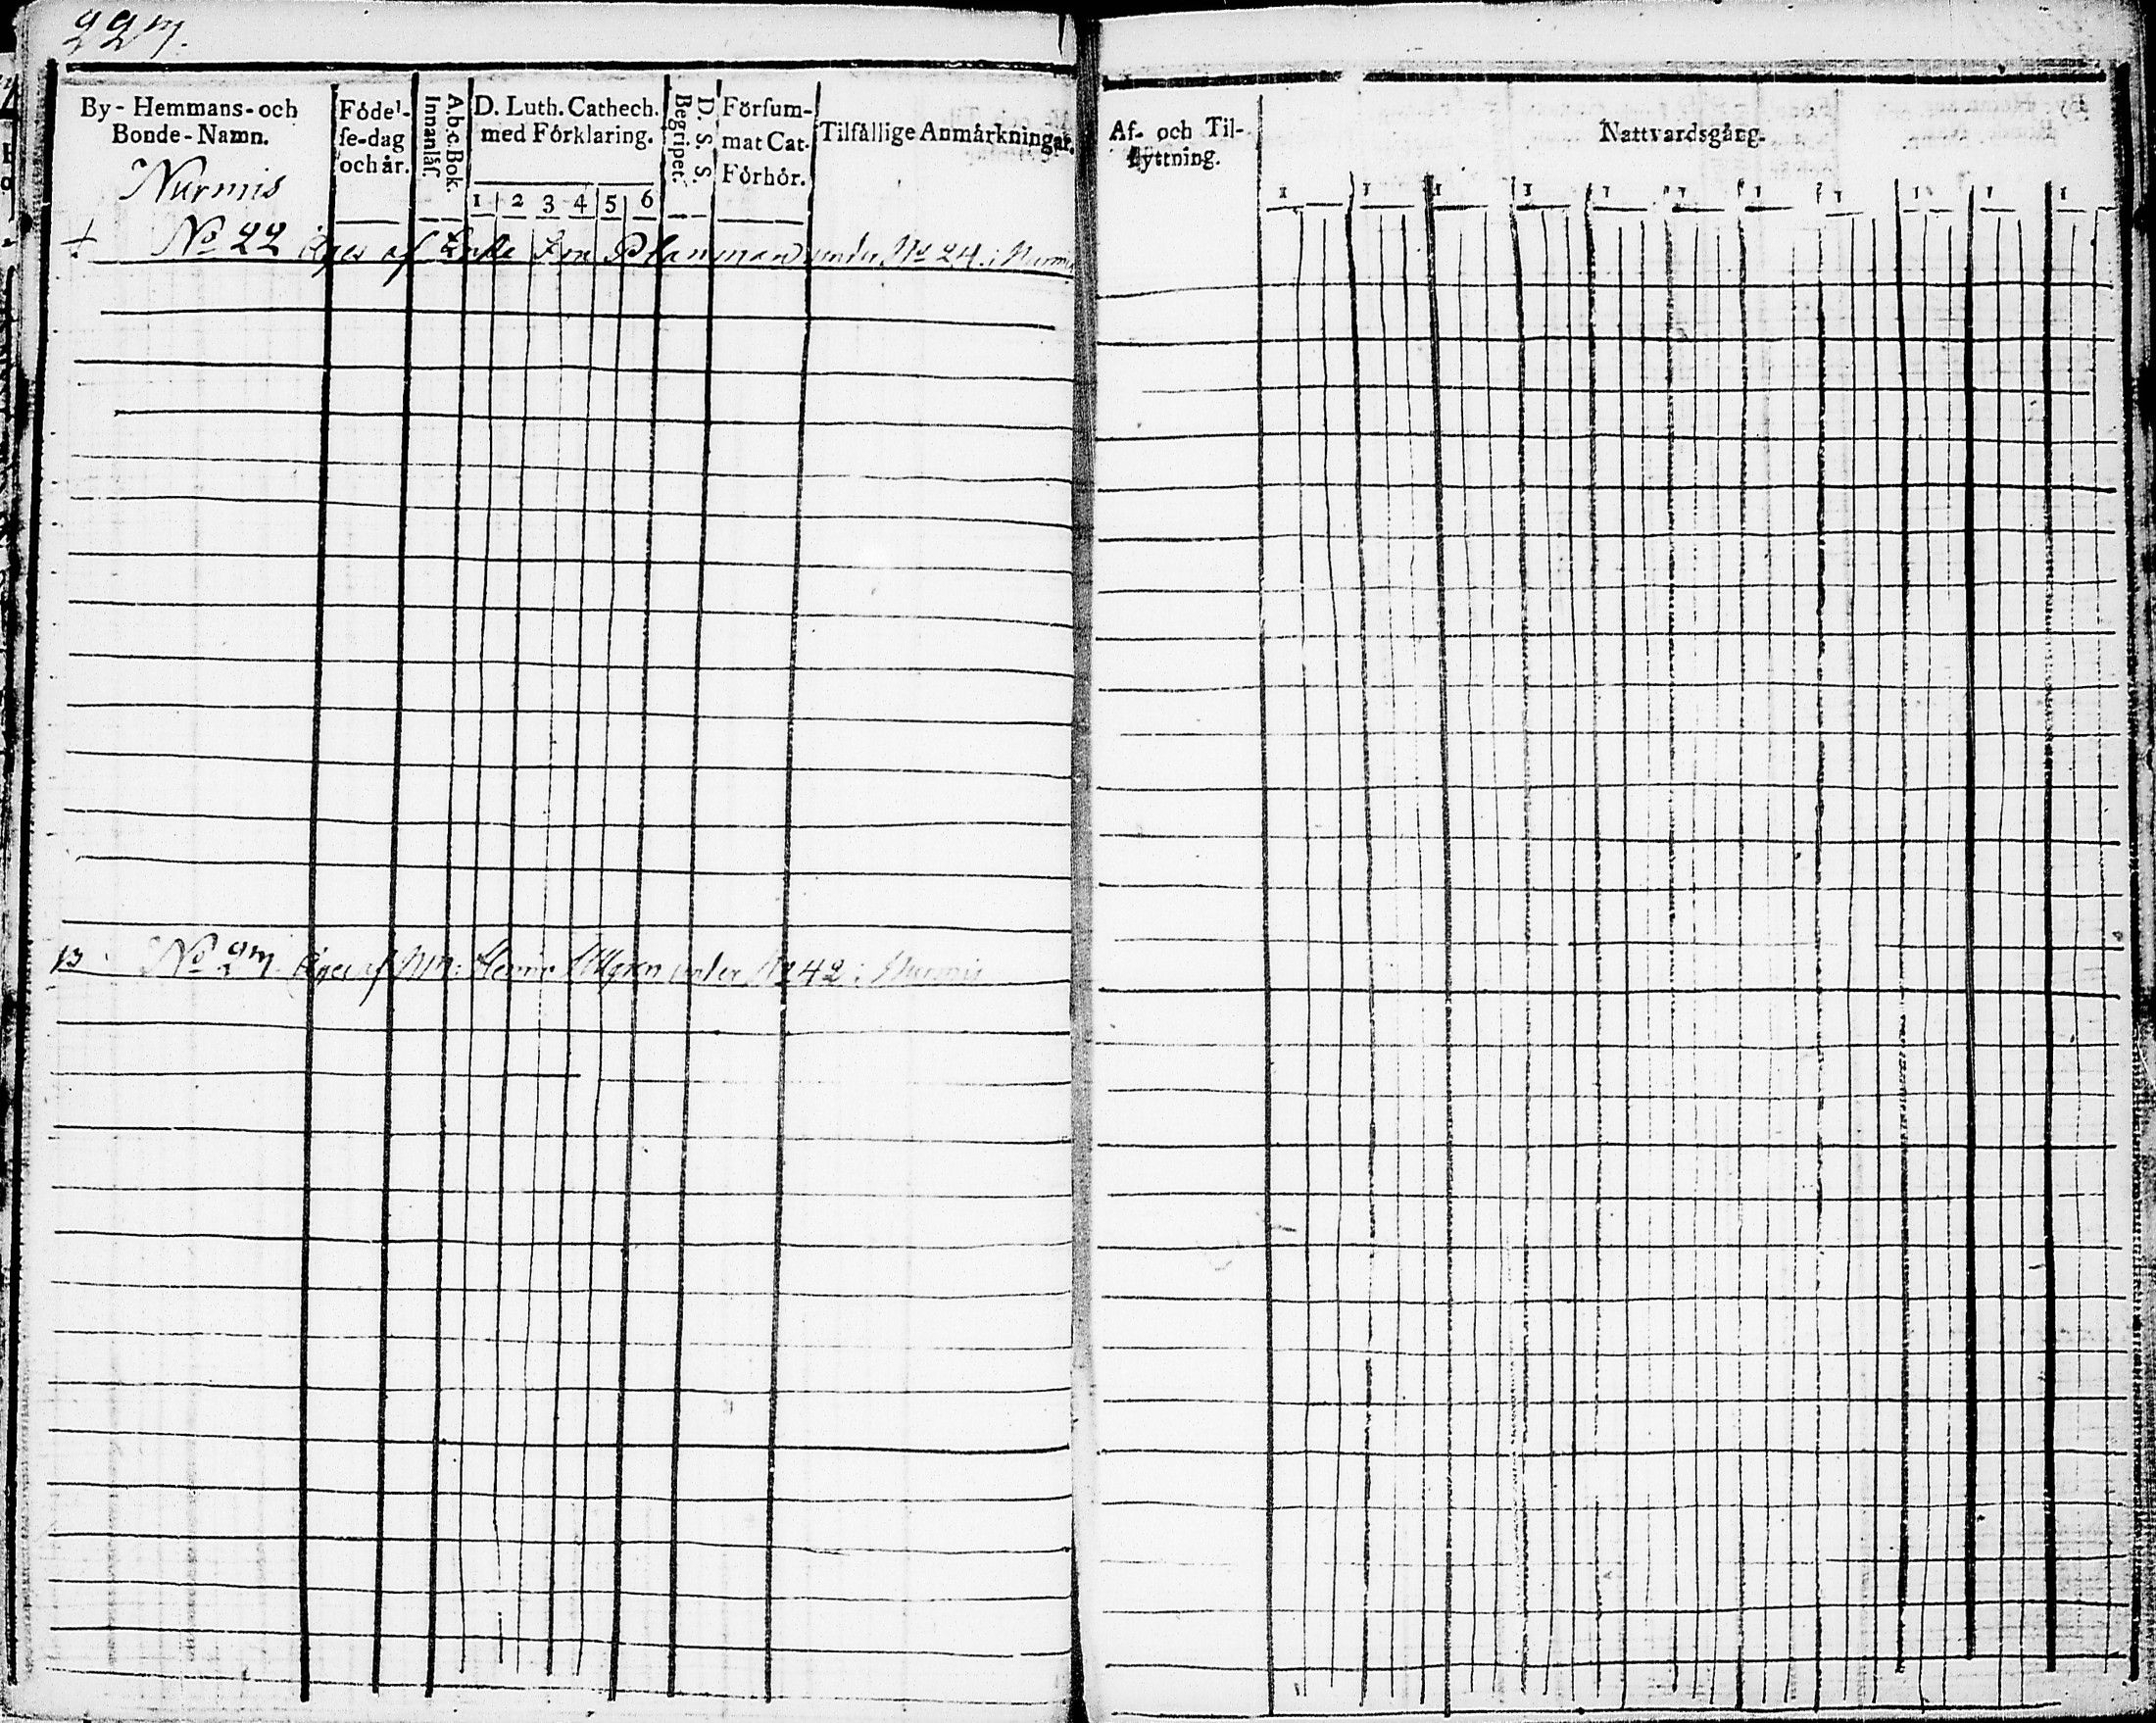 227.
By - Hemmans - och
Bonde - Namn.
Födel-
se-dag
och år.
A.b.c.Bok.
Innanläs.
D. Luth. Cathech.
med Förklaring.
1 2 3 4 5 6
D. S. S.
Begripet.
Försum-
mat Cat.
Förhör.
Tilfällige Anmärkningar.
Nurmis
+ No 22 Äges af Enke Fru Planman under No 24 i Nurmis
B No 27. Äges af Henric under No 42 i Nurmis
Af- och Til-
flyttning.
Nattvardsgång.
1 1 1 1 1 1 1 1 1 1 1